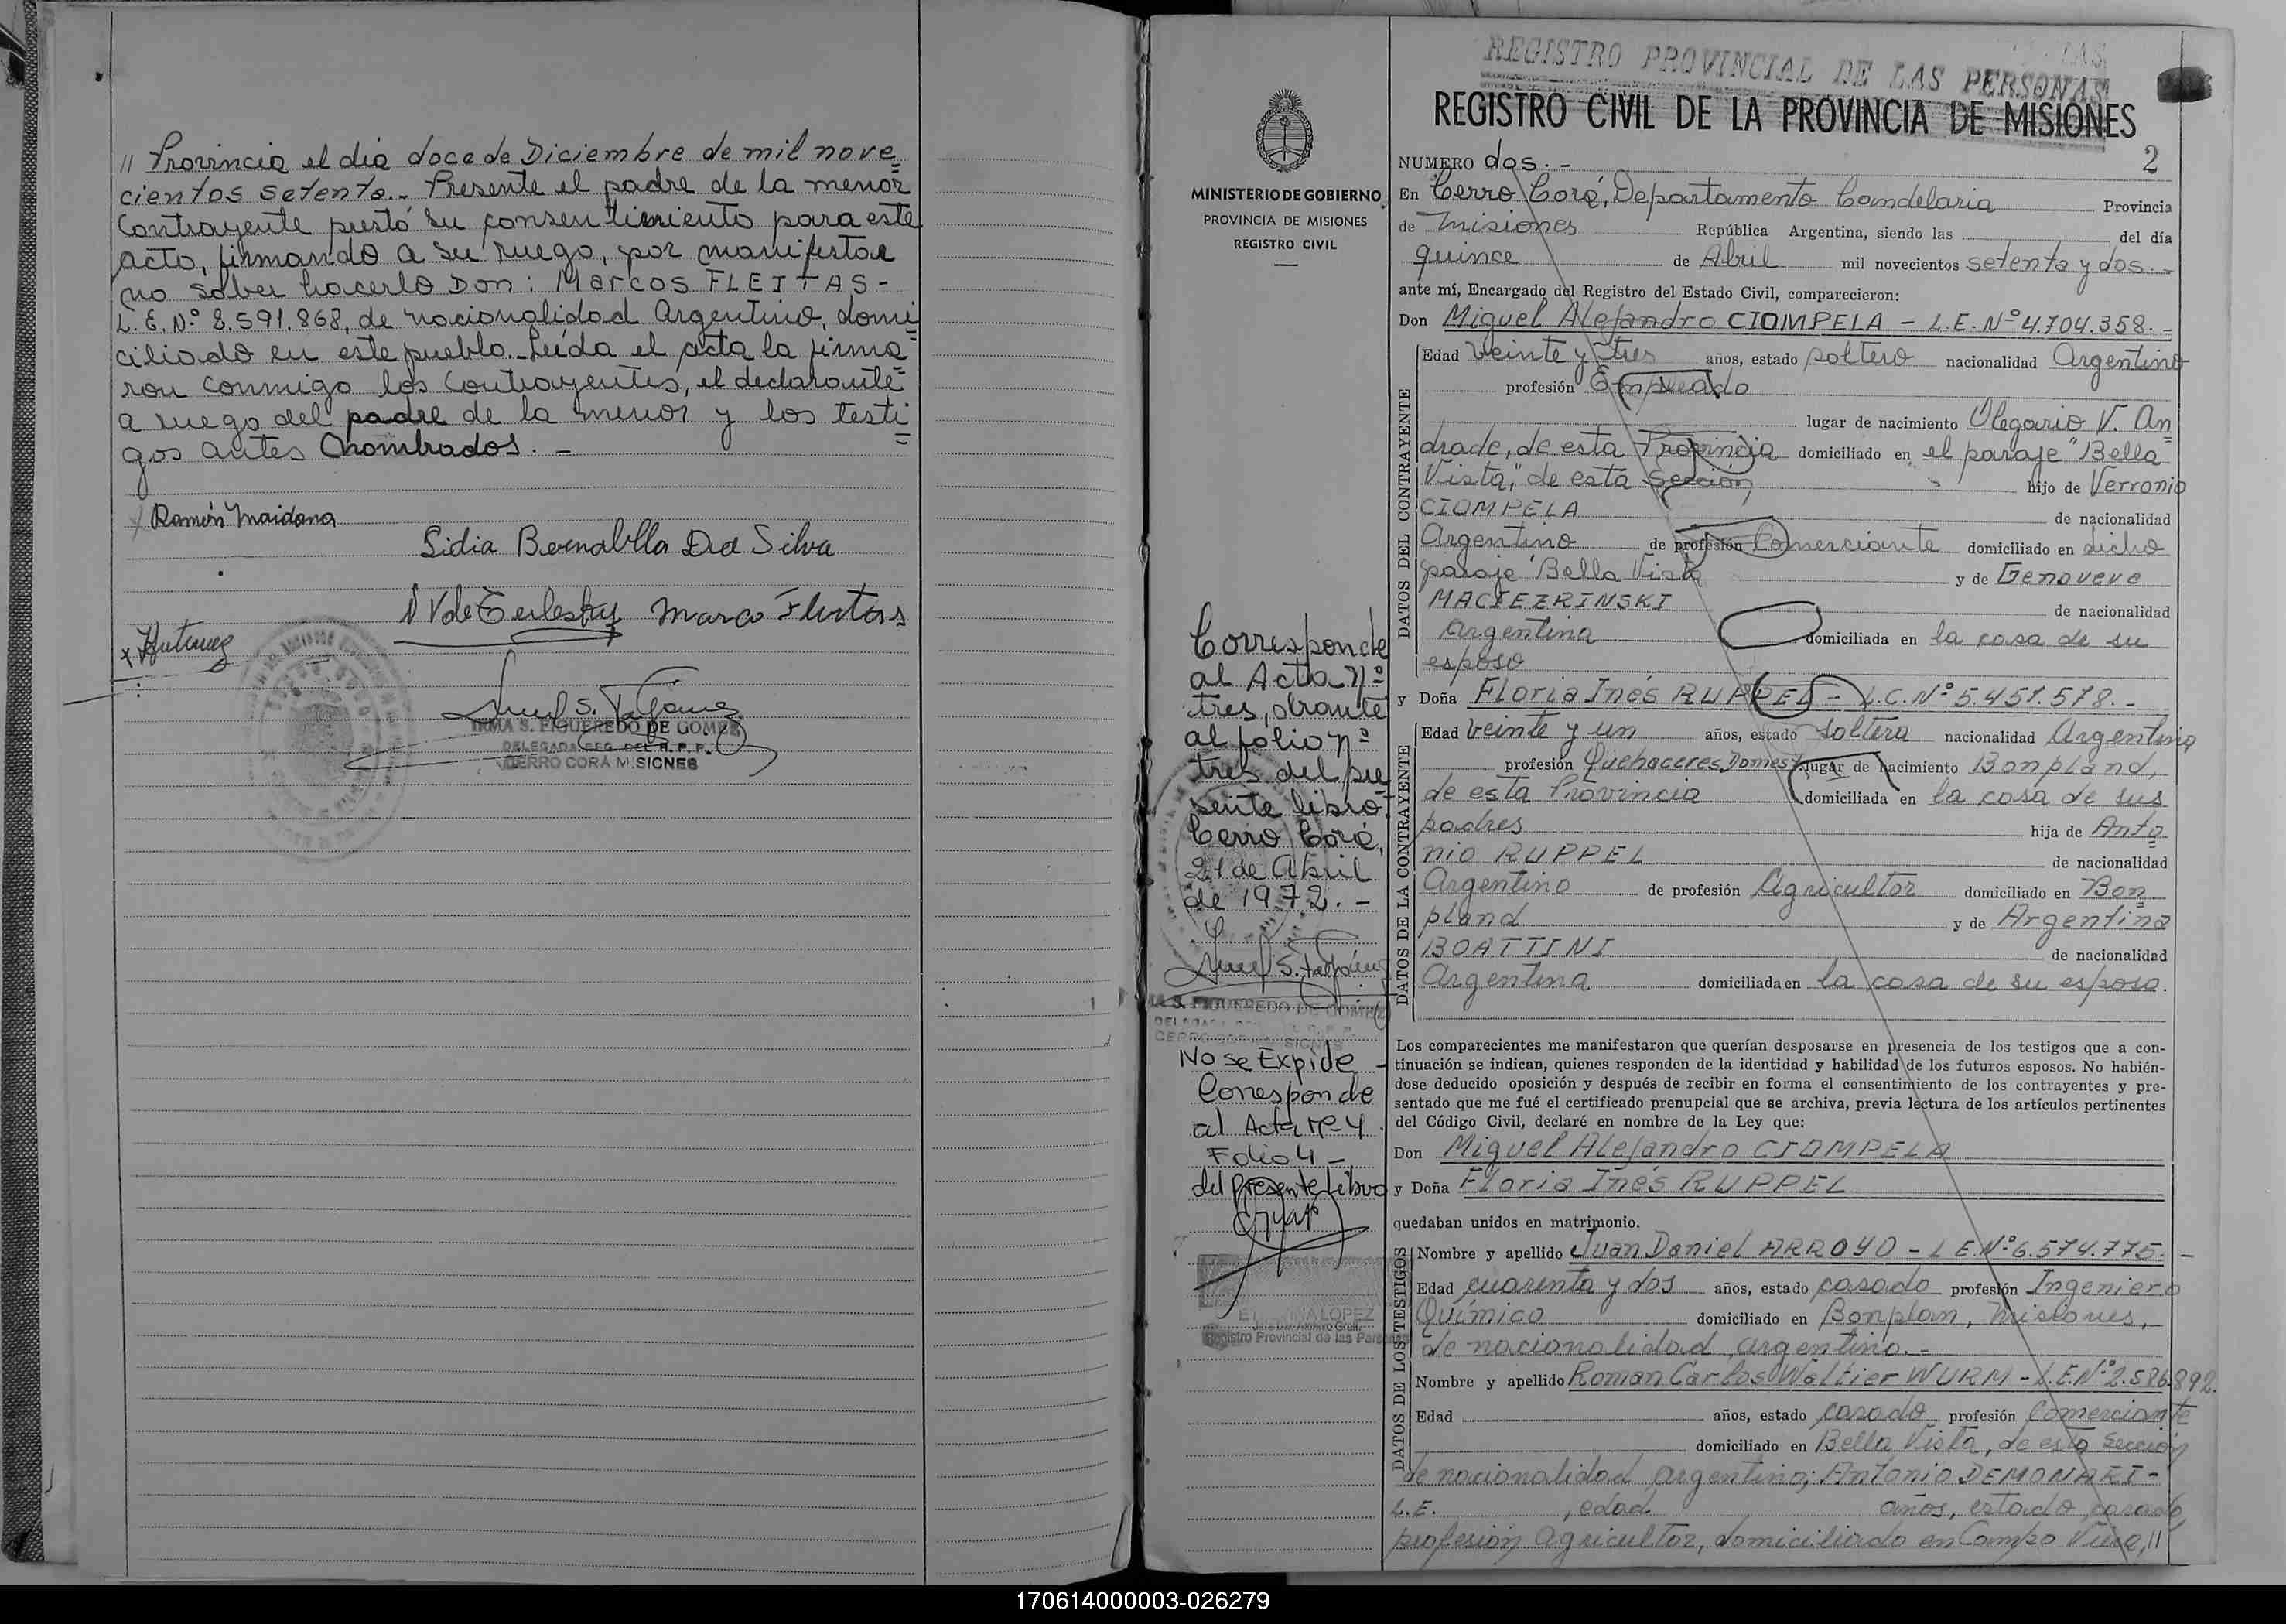 // Provincia el día doce de Diciembre de mil nove=
cientos setenta.- Presente el padre de la menor
contrayente prestó su consentimiento para este
acto, firmando a su ruego, por manifestar
no saber hacerlo Don: Marcos FLEITAS-
L.E.Nº 8.591.868, de nacionalidad Argentino, domi
ciliado en este pueblo.- Leída el acta la firma=
ron conmigo los contrayentes, el declarante
a ruego del padre de la menor y los testi=
gos antes nombrados.-
Ramón Maidana
Lidia Bernabella Da Silva
Marco Fleitas
IRMA S. FIGUEREDO DE GOMEZ
DELEGADA SEC. DEL R.P.P.
CERRO CORA MISIONES
MINISTERIO DE GOBIERNO
PROVINCIA DE MISIONES
REGISTRO CIVIL
Corresponde
al Acta Nº
tres, obrante
al folio nº
tres del pre
sente libro.
Cerro Corá,
21 de Abril
de 1972.-
S. FIGUEREDO DE GOMEZ
No se Expide -
Corresponde
al Acta Nº 4
Folio 4 -
del presente Libro
LOPEZ
Registro Provincial de las Personas
REGISTRO PROVINCIAL DE LAS PERSONAS
REGISTRO CIVIL DE LA PROVINCIA DE MISIONES
2
NUMERO dos.-
En Cerro Corá, Departamento Candelaria Provincia
de Misiones República Argentina, siendo las del día
quince de Abril mil novecientos setenta y dos.-
ante mí, Encargado del Registro del Estado Civil, comparecieron:
Don Miguel Alejandro CIOMPELA - L.E. Nº 4.704.358.-
DATOS DEL CONTRAYENTE
Edad veinte y tres años, estado soltero nacionalidad Argentino
profesión Empleado
lugar de nacimiento Olegario V. An=
drade, de esta Provincia domiciliado en el paraje "Bella
Vista", de esta Sección hijo de Verronio
CIOMPELA de nacionalidad
Argentino de profesión Comerciante domiciliado en dicho
paraje Bella Vista y de Genoveva
MACIEZRINSKI de nacionalidad
Argentina domiciliada en la casa de su
esposo
y Doña Floria Inés RUPPEL - L.C. Nº 5.451.578.-
DATOS DE LA CONTRAYENTE
Edad veinte y un años, estado soltera nacionalidad Argentina
profesión Quehaceres Domest. lugar de nacimiento Bonpland,
de esta Provincia domiciliada en la casa de sus
padres hija de Anto=
nio RUPPEL de nacionalidad
Argentino de profesión Agricultor domiciliado en Bon=
pland y de Argentina
BOATTINI de nacionalidad
Argentina domiciliada en la casa de su esposo.
Los comparecientes me manifestaron que querían desposarse en presencia de los testigos que a con-
tinuación se indican, quienes responden de la identidad y habilidad de los futuros esposos. No habién-
dose deducido oposición y después de recibir en forma el consentimiento de los contrayentes y pre-
sentado que me fué el certificado prenupcial que se archiva, previa lectura de los artículos pertinentes
del Código Civil, declaré en nombre de la Ley que:
Don Miguel Alejandro CIOMPELA
y Doña Floria Inés RUPPEL
quedaban unidos en matrimonio.
DATOS DE LOS TESTIGOS
Nombre y apellido Juan Daniel ARROYO - L.E. Nº 6.574.775.-
Edad cuarenta y dos años, estado casado profesión Ingeniero
Químico domiciliado en Bonplan, Misiones,
de nacionalidad argentino.-
Nombre y apellido Roman Carlos Waltier WURM - L.E.Nº 2.586.892.
Edad años, estado casado profesión Comerciante
domiciliado en Bella Vista, de esta Sección
de nacionalidad argentino; Antonio DEMONARI-
L.E. , edad años, estado casado
profesión agricultor, domiciliado en Campo Viera, //
170614000003-026279